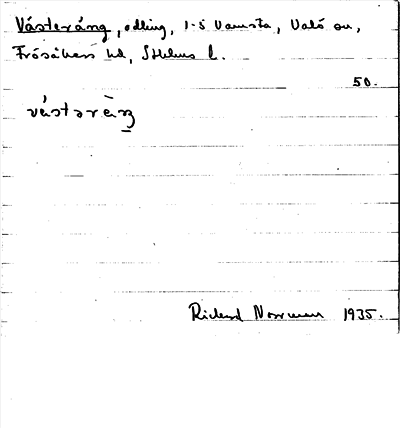 Västeräng, odling, 1-5 Vamsta, Valö sn,
Frösåkers hd, Sthlms l.
50.
västərèŋ
Rickard Norrman 1935.